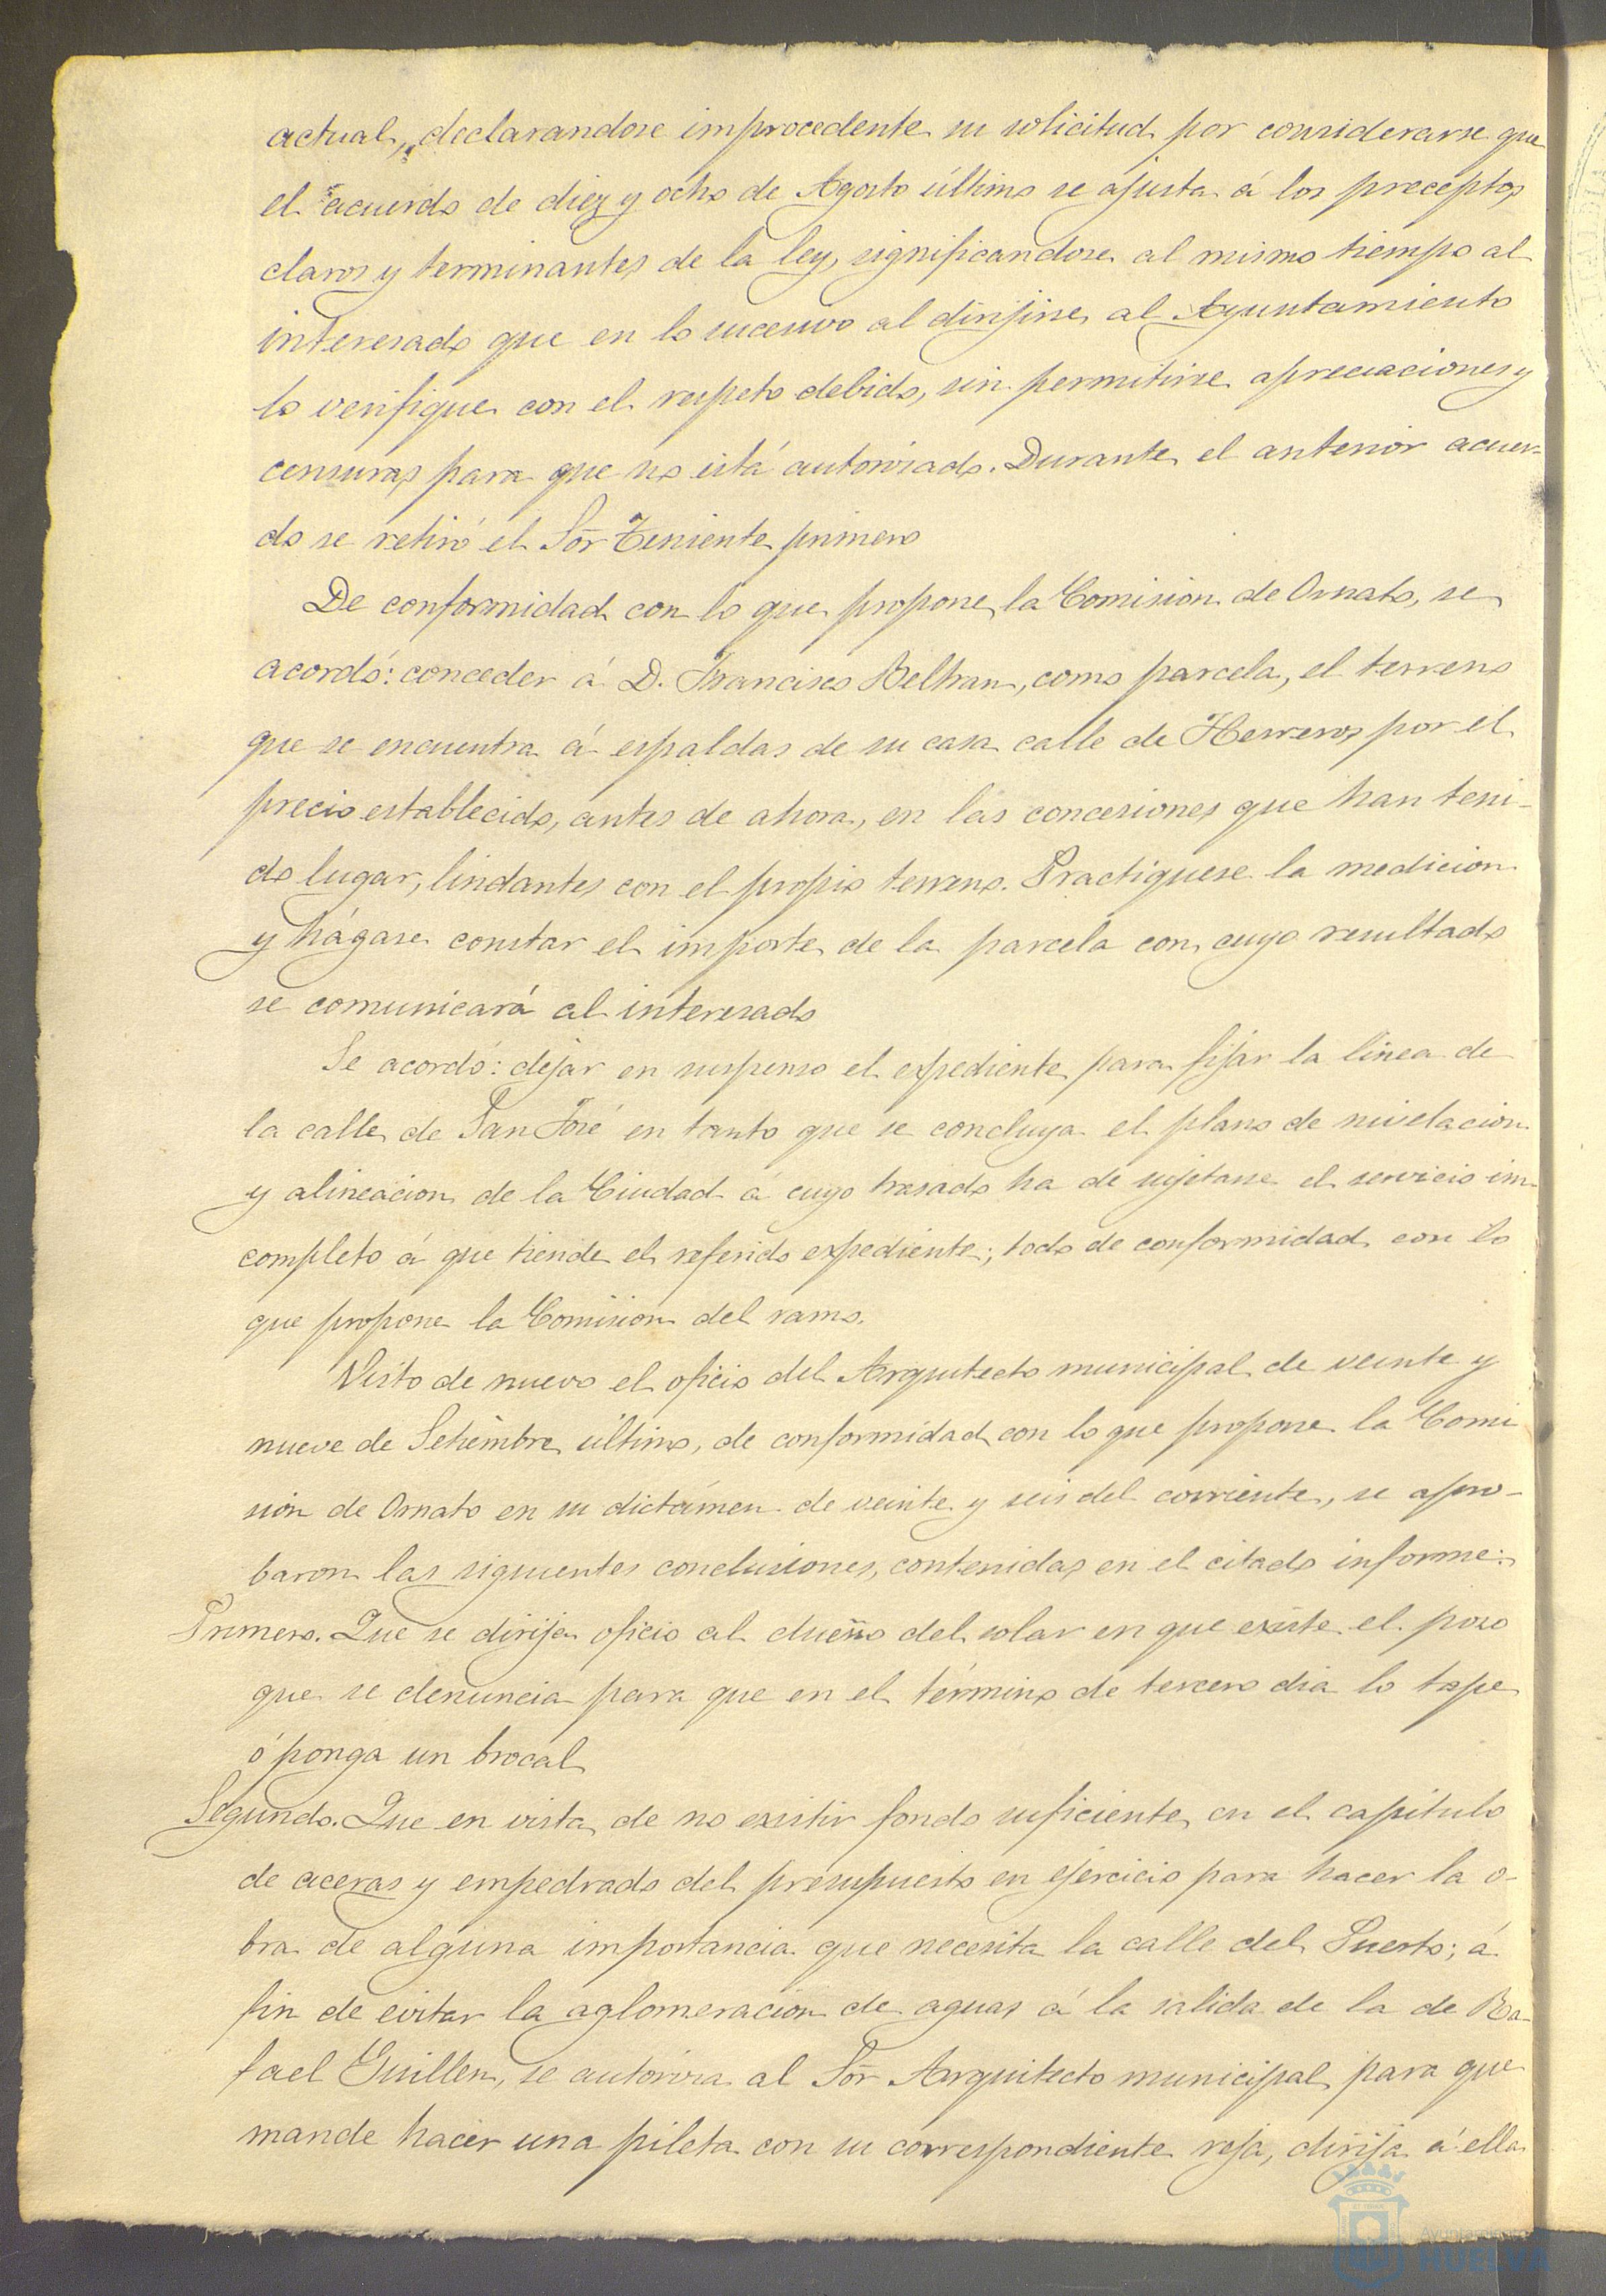 actual, declarandose improcedente su solicitud por considerarse que
el acuerdo de diez y ocho de Agosto último se ajusta á los preceptos
claros y terminantes de la ley, significandose al mismo tiempo al
interesado que en lo sucesivo al dirijirse al Ayuntamiento
lo verifique con el respeto debido, sin permitirse apreciaciones y
censuras para que no está autorizado. Durante el anterior acuer-
do se retiró el Sōr Teniente primero
De conformidad con lo que propone la Comision de Ornato, se
acordó: conceder á D. Francisco Beltran, como parcela, el terreno
que se encuentra á espaldas de su casa calle de Herreros por el
precio establecido, antes de ahora, en las concesiones que han teni-
do lugar, lindantes con el propio terreno. Practíquese la medicion
y hágase constar el importe de la parcela con cuyo resultado
se comunicará al interesado
Se acordó: dejar en suspenso el espediente para fijar la linea de
la calle de San José en tanto que se concluya el plano de nivelacion
y alineacion de la Ciudad á cuyo trasado ha de sujetarse el servicio in-
completo á que tiende el referido expediente; todo de conformidad con lo
que propone la Comision del ramo.
Visto de nuevo el oficio del Arquitecto municipal de veinte y
nueve de Setiembre último, de conformidad con lo que propone la Comi
sion de Ornato en su dictámen de veinte y seis del corriente, se apro-
baron las siguientes conclusiones, contenidas en el citado informe:
Primero. Que se dirija oficio al dueño del solar en que existe el poso
que se denuncia para que en el término de tercero dia lo tape
ó ponga un brocal
Segundo. Que en vista de no existir fondo suficiente en el capítulo
de aceras y empedrado del presupuesto en ejercicio para hacer la o-
bra de alguna importancia que necesita la calle del Puerto; á
fin de evitar la aglomeracion de aguas á la salida de la de Ra-
fael Guillen, se autoriza al Sōr Arquitecto municipal para que
mande hacer una pileta con su correspondiente reja, dirija á ella
Ayuntamiento
HUELVA